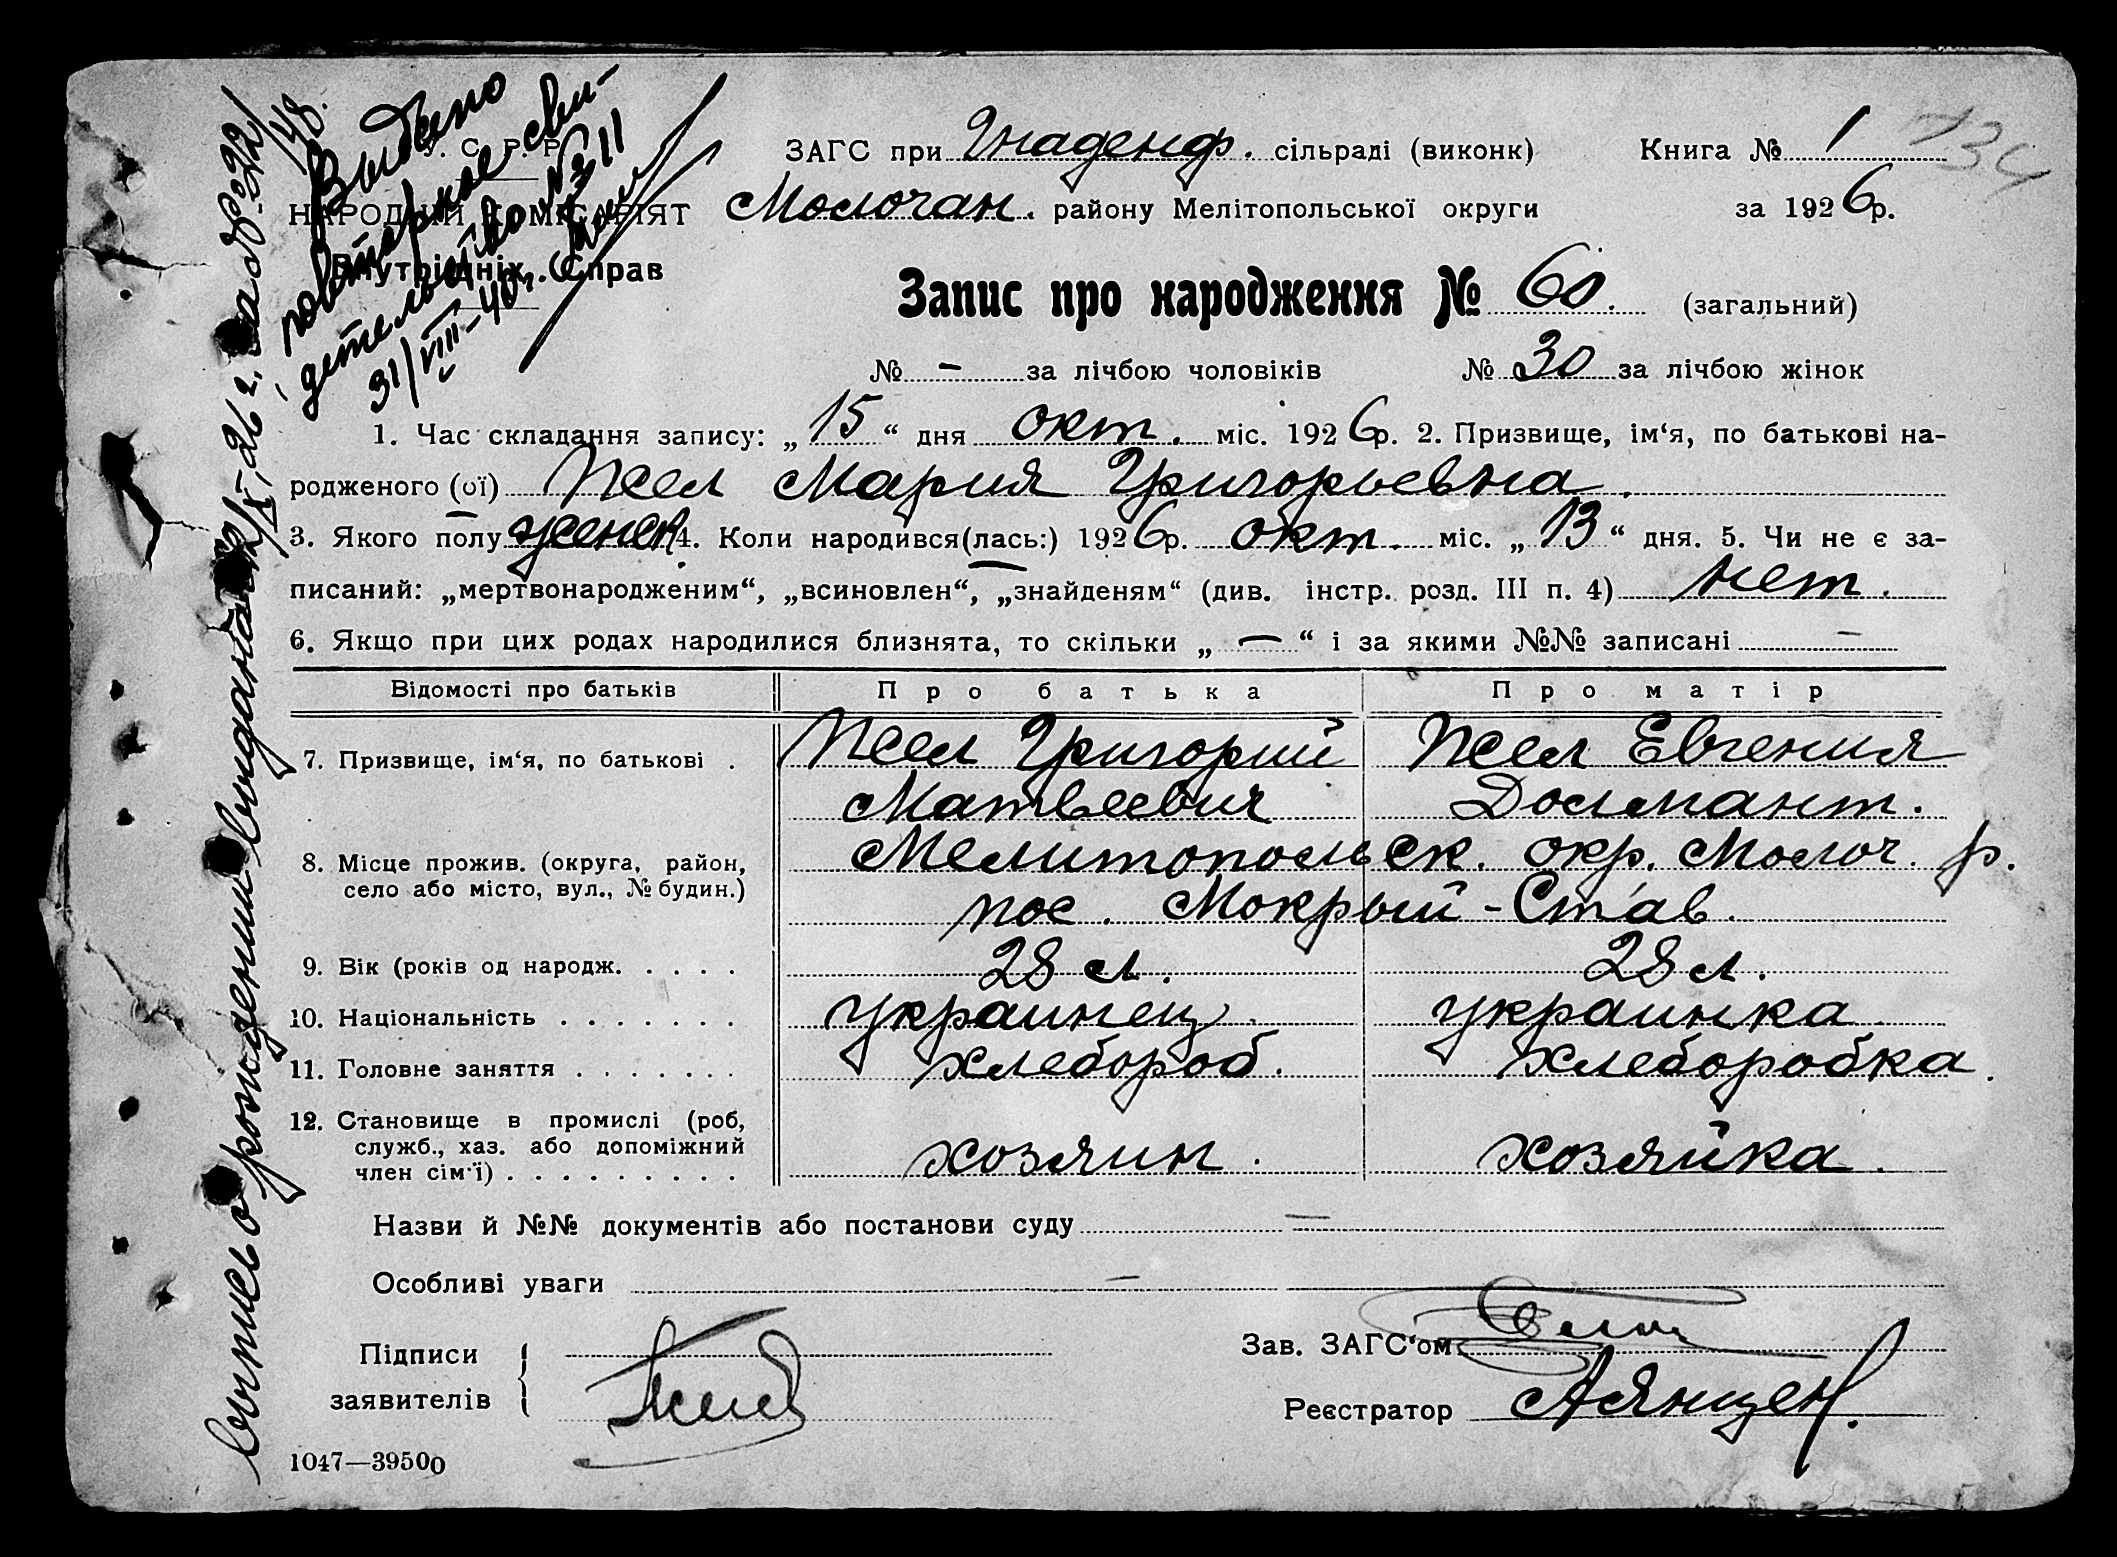 Выдано
повторное сви-
детельство №311
31/VIII-40г.
У. С. Р. Р.
НАРОДНІЙ КОМІСАРІЯТ
Внутрішніх Справ
ЗАГС при Гнаденф. сільраді (виконк) Книга № 1
734
Молочан. району Мелітопольської округи за 1926р.
Запис про народження № 60. (загальний)
№ - за лічбою чоловіків № 30 за лічбою жінок
1. Час складання запису: „15“ дня окт. міс. 1926р. 2. Призвище, ім‘я, по батькові на-
родженого (ої) Псел Мария Григорьевна.
3. Якого полу женск. 4. Коли народився(лась:) 1926р. окт. міс. „13“ дня. 5. Чи не є за-
писаний: „мертвонародженим“, „всиновлен“, „знайденям“ (див. інстр. розд. III п. 4) нет.
6. Якщо при цих родах народилися близнята, то скільки „—“ і за якими №№ записані —
Відомості про батьків Про батька Про матір
7. Призвище, ім‘я, по батькові . Псел Григорий Псел Евгения
Матвеевич Долмант.
8. Місце прожив. (округа, район, Мелитопольск. окр. Молоч. р.
село або місто, вул., № будин.) пос. Мокрый-Став.
9. Вік (років од народж. . . . . 28 л. 28 л.
10. Національність . . . . . . . украинец. украинка
11. Головне заняття . . . . . . . хлебороб. хлеборобка.
12. Становище в промислі (роб,
служб., хаз. або допоміжний
член сім‘ї) . . . . . . . . . хозяин. хозяйка.
Назви й №№ документів або постанови суду —
Особливі уваги —
Підписи
заявителів
Зав. ЗАГС‘ом
Реєстратор А Янцен.
1047—39500
выпись о рождении выдана